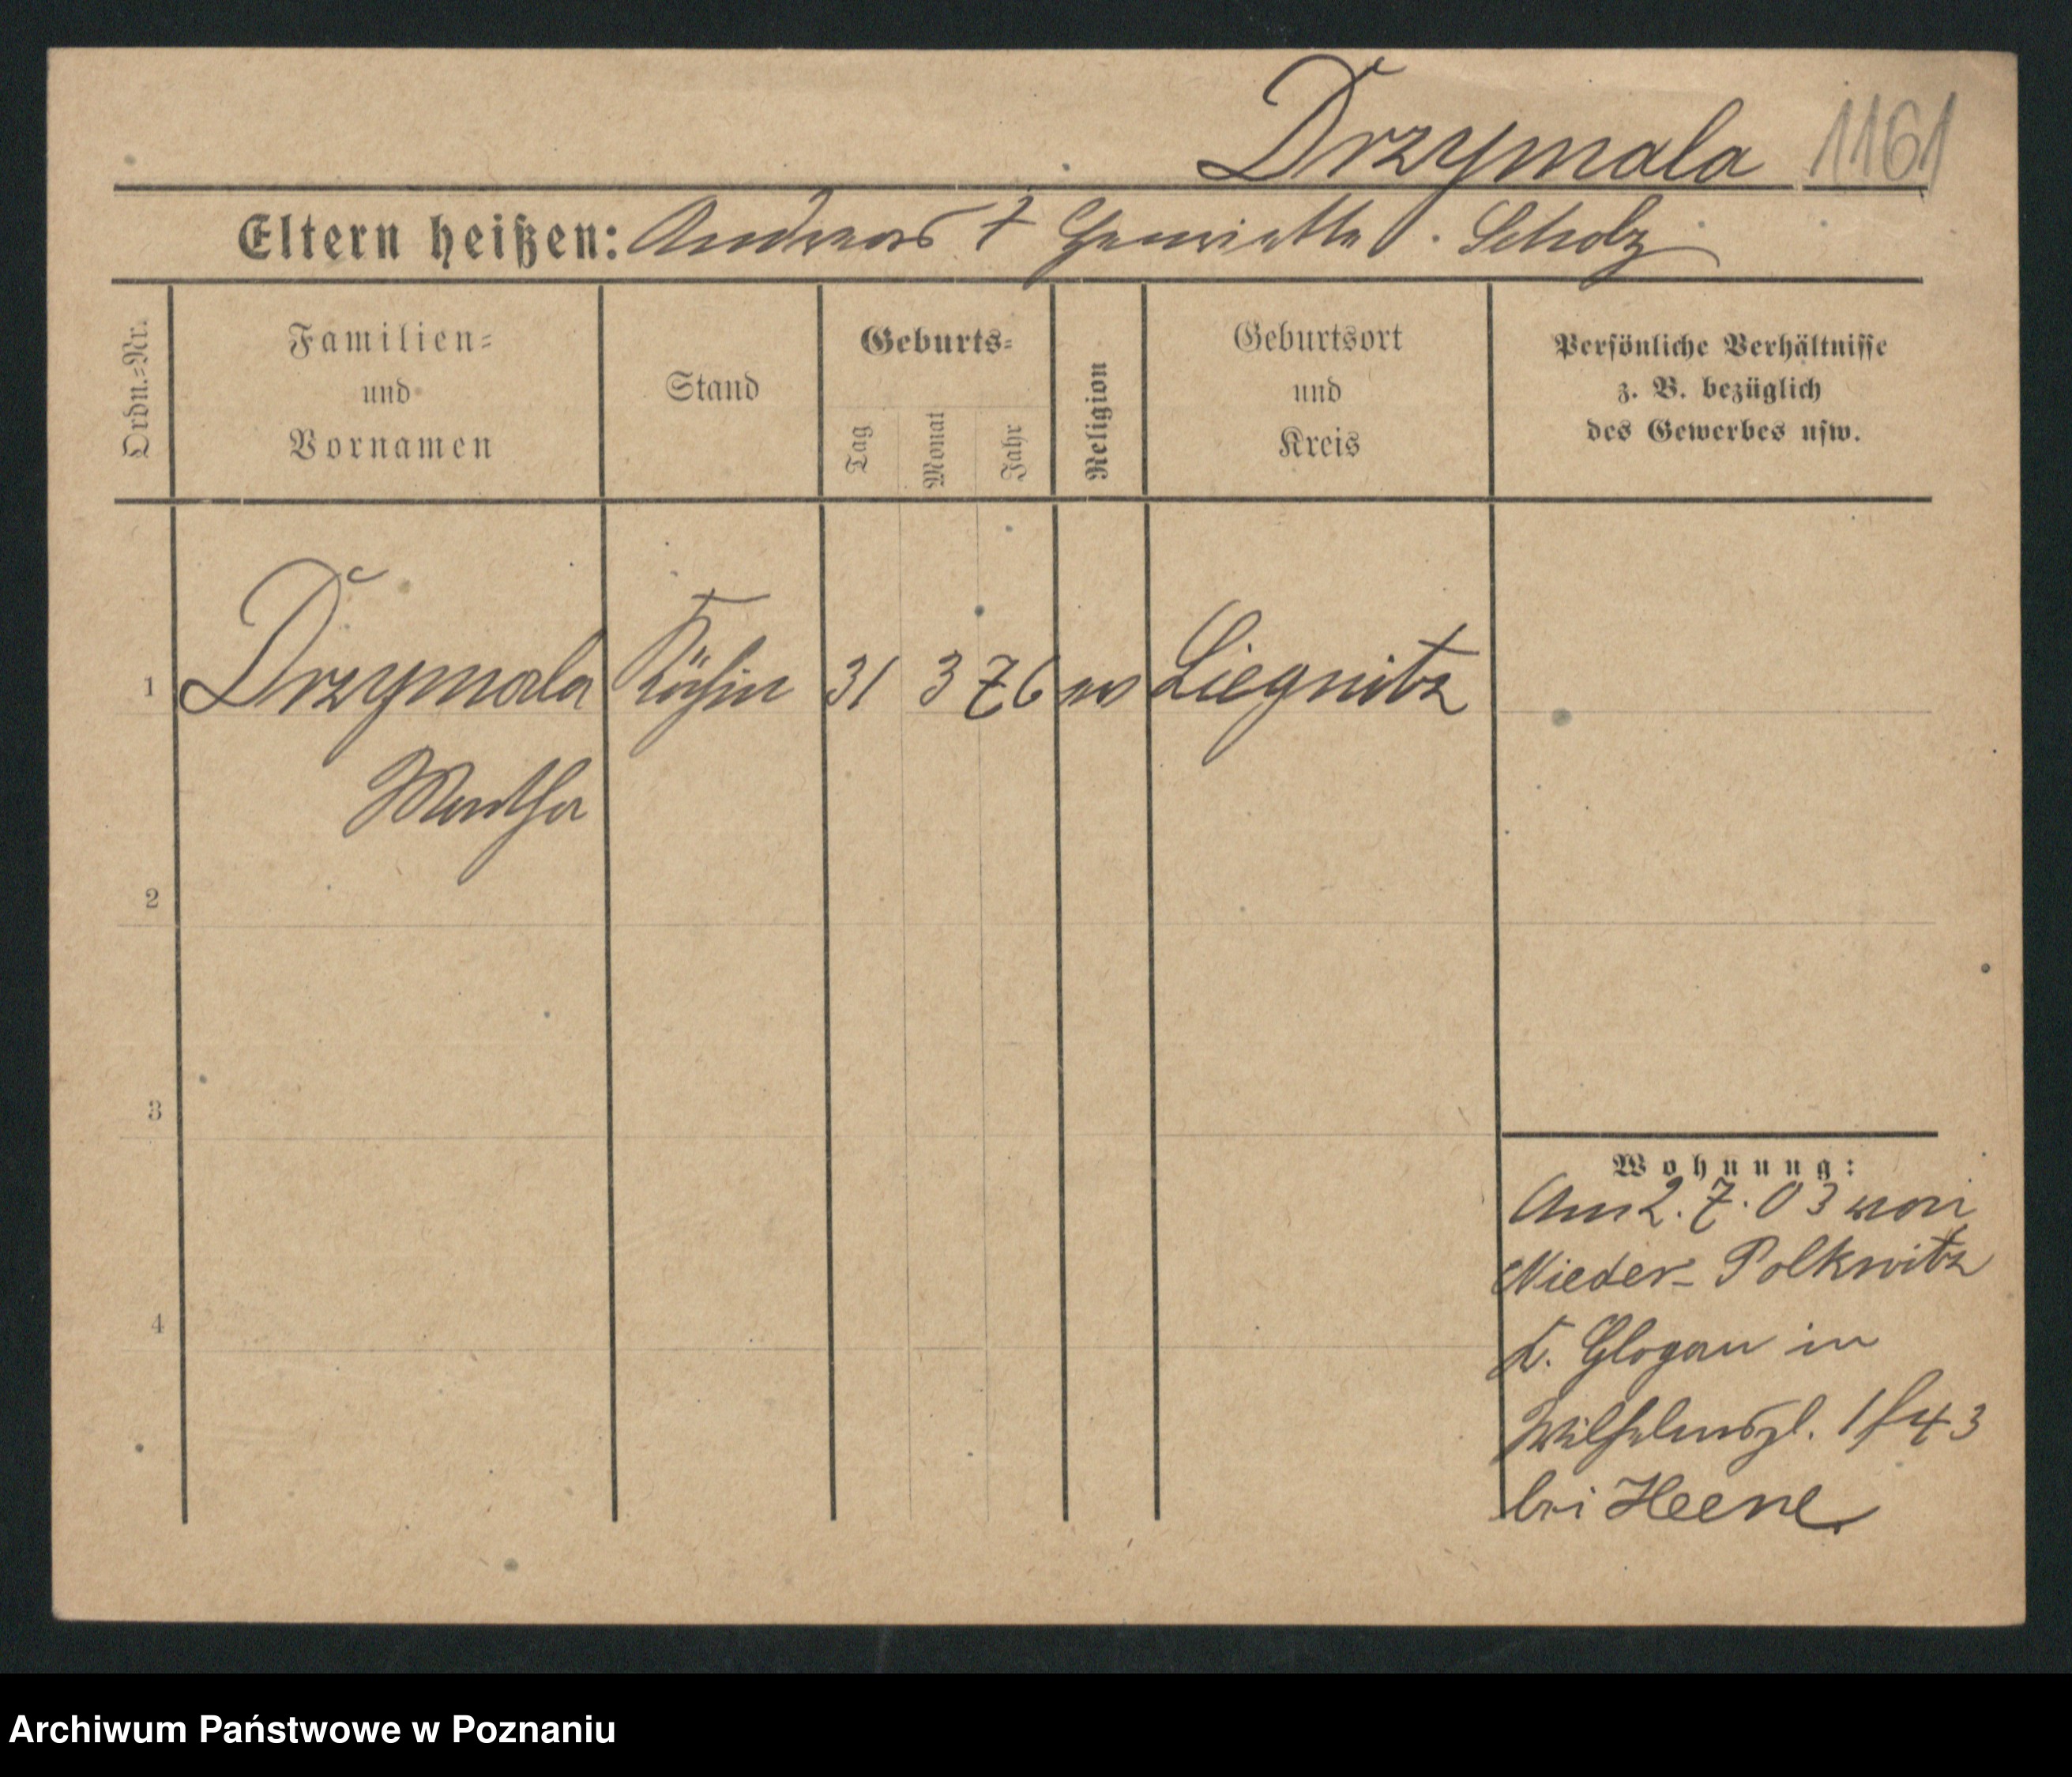 Drzymala 1161
Eltern heißen: Andreas † Henriette g. Scholz
Ordn.=Nr.
Familien=
und
Vornamen
Stand
Geburts=
Tag
Monat
Jahr
Religion
Geburtsort
und
Kreis
Persönliche Verhältnisse
z. B. bezüglich
des Gewerbes usw.
1 Drzymala Köchin 31 3 76 ev Liegnitz
Martha
2
3
4
Wohnung:
Am 2. 7. 03 von
Nieder-Polkwitz
K. Glogau in
Wilhelmspl. 1 f 43
bei Heene.
Archiwum Państwowe w Poznaniu